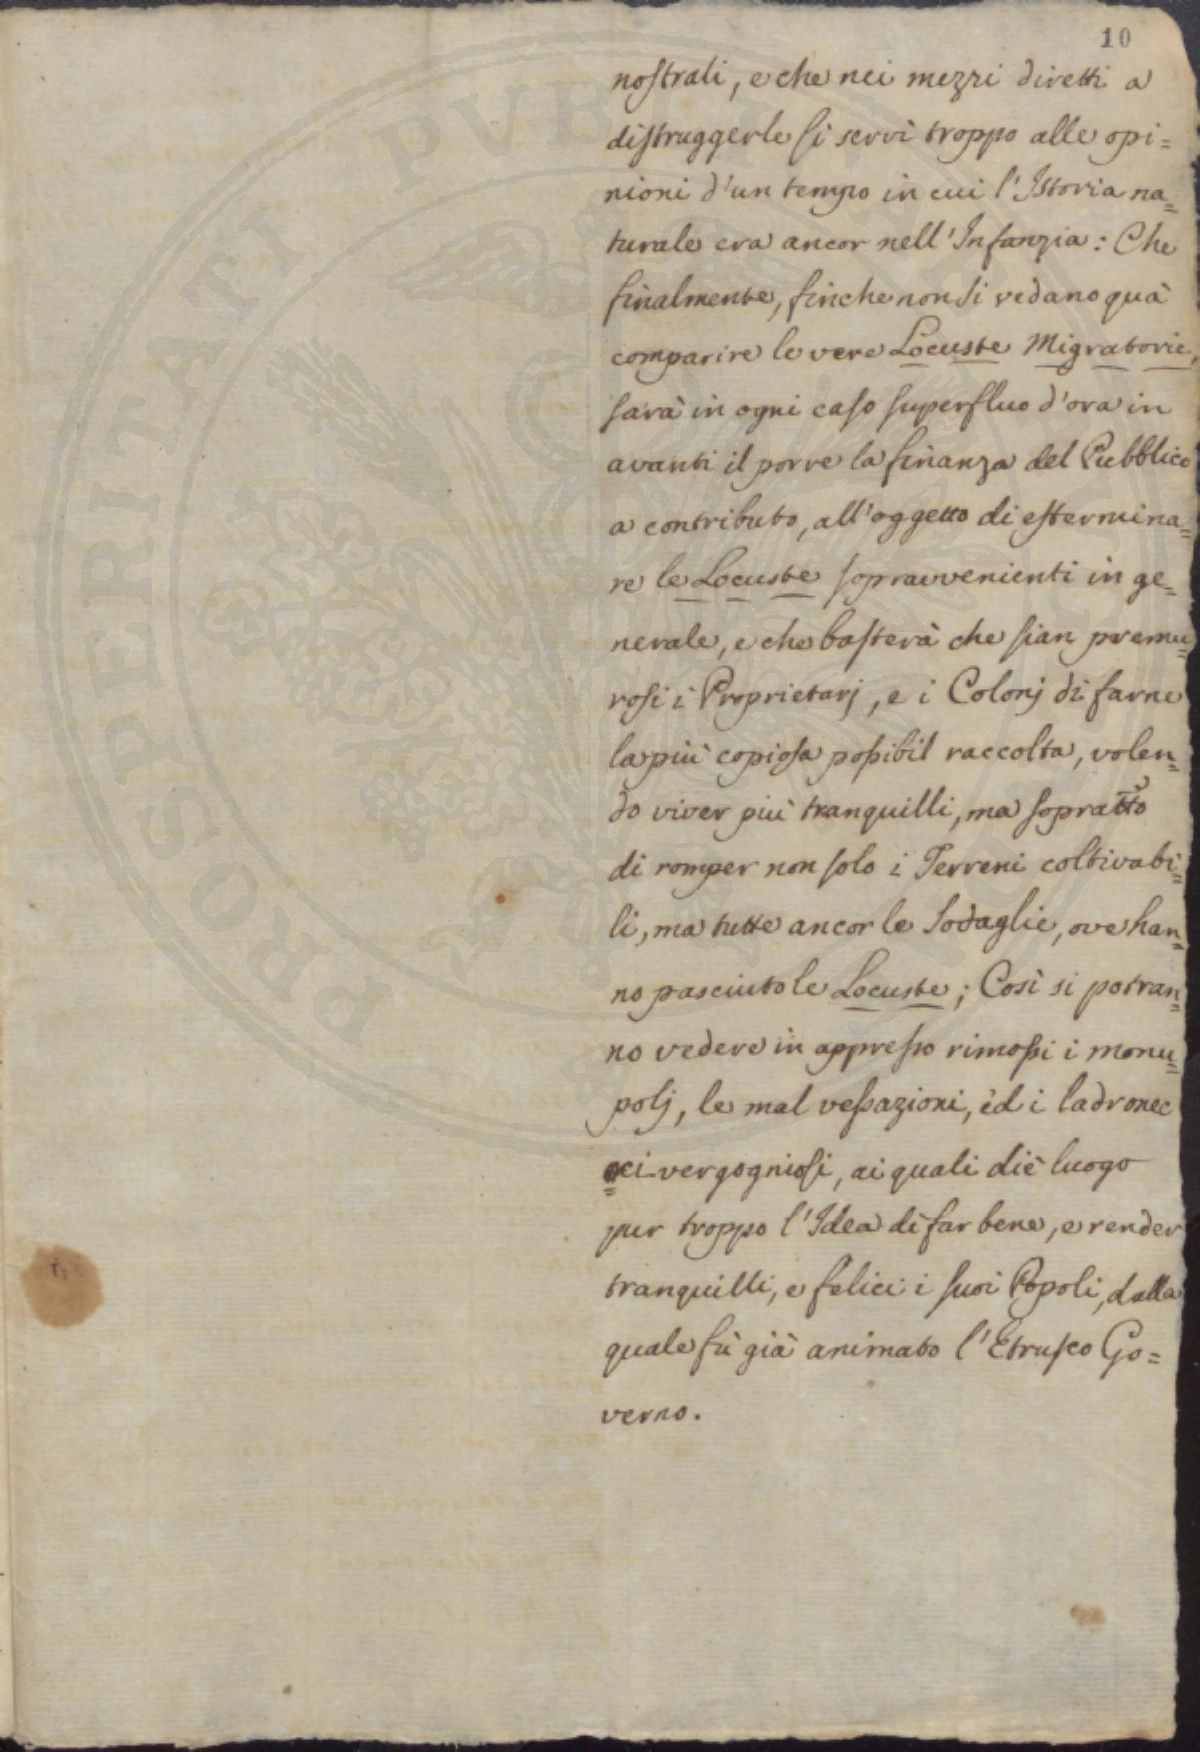 10
nostrali, e che nei mezzi diretti a
distruggerle si servì troppo alle opi=
nioni d'un tempo in cui l'Istoria na=
turale era ancor nell'Infanzia: Che
finalmente, finche non si vedano quà
comparire le vere Locuste Migratorie,
sarà in ogni caso superfluo d'ora in
avanti il porre la finanza del Pubblico
a contributo, all'oggetto di estermina=
re le Locuste sopravvenienti in ge=
nerale, e che basterà che sian premu=
rosi i Proprietarj, e i Colonj di farne
la più copiosa possibil raccolta, volen=
do viver più tranquilli, ma sopratto
di romper non solo i Terreni coltivabi=
li, ma tutte ancor le Sodaglie, ove han=
no pasciuto le Locuste; Così si potran=
no vedere in appresso rimossi i monu=
polj, le mal vessazioni, ed i ladronec
=ci vergogniosi, ai quali diè luogo
pur troppo l'Idea di far bene, e render
tranquilli, e felici i suoi Popoli, dalla
quale fù già animato l'Etrusco Go=
verno.
PROSPERITATI PUBLICAE